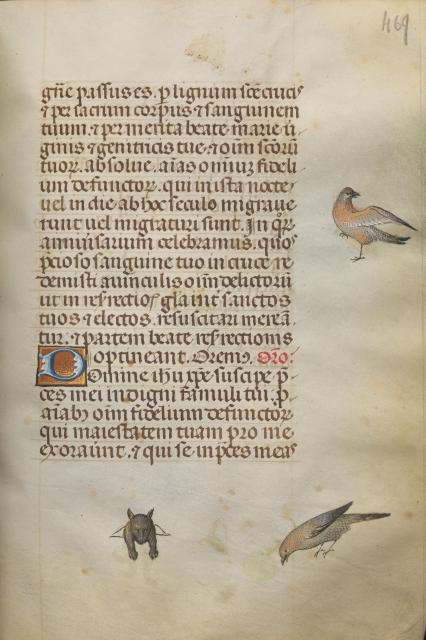 469
gr̃e passus es. p̱ lignum sc̃e cruci⁹
⁊ per sacrum corpus ⁊ sanguinem
tuum. ⁊ per merita beate marie ui
ginis ⁊ genitricis tue. ⁊ oim̃ scõrũ
tuoꝝ. absolue. aĩas omniuz fideli
um defunctoꝝ. qui in ista nocte
uel in die ab hoc seculo migraue
runt uel migraturi sunt. In q̃ꝝ
anniuersarium celebramus. quos
p̃cioso sanguine tuo in cruce re
demisti a uinculis oim̃ delictorũ
ut in resrectiõs gl̃a int̃ sanctos
tuos ⁊ electos. resuscitari mereã
tur. ⁊ partem beate resrectionis
optineant. Oremꝰ. Or̃o.
Domine ih̃u xp̃e suscipe p̃
ces mei indigni famuli tui. p̱
aĩab⁹ oim̃ fidelium defunctoꝝ
qui maiestatem tuam pro me
exoraũt. ⁊ qui se in p̃ces meas